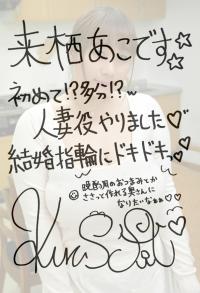 来栖あこです☆☆
初めて!?多分!?
人妻役やりました♡♡
結婚指輪にドキドキっ♡
晩酌用のおつまみとか
ささっと作れる奥さんに
なりたいなぁぁ♡♡